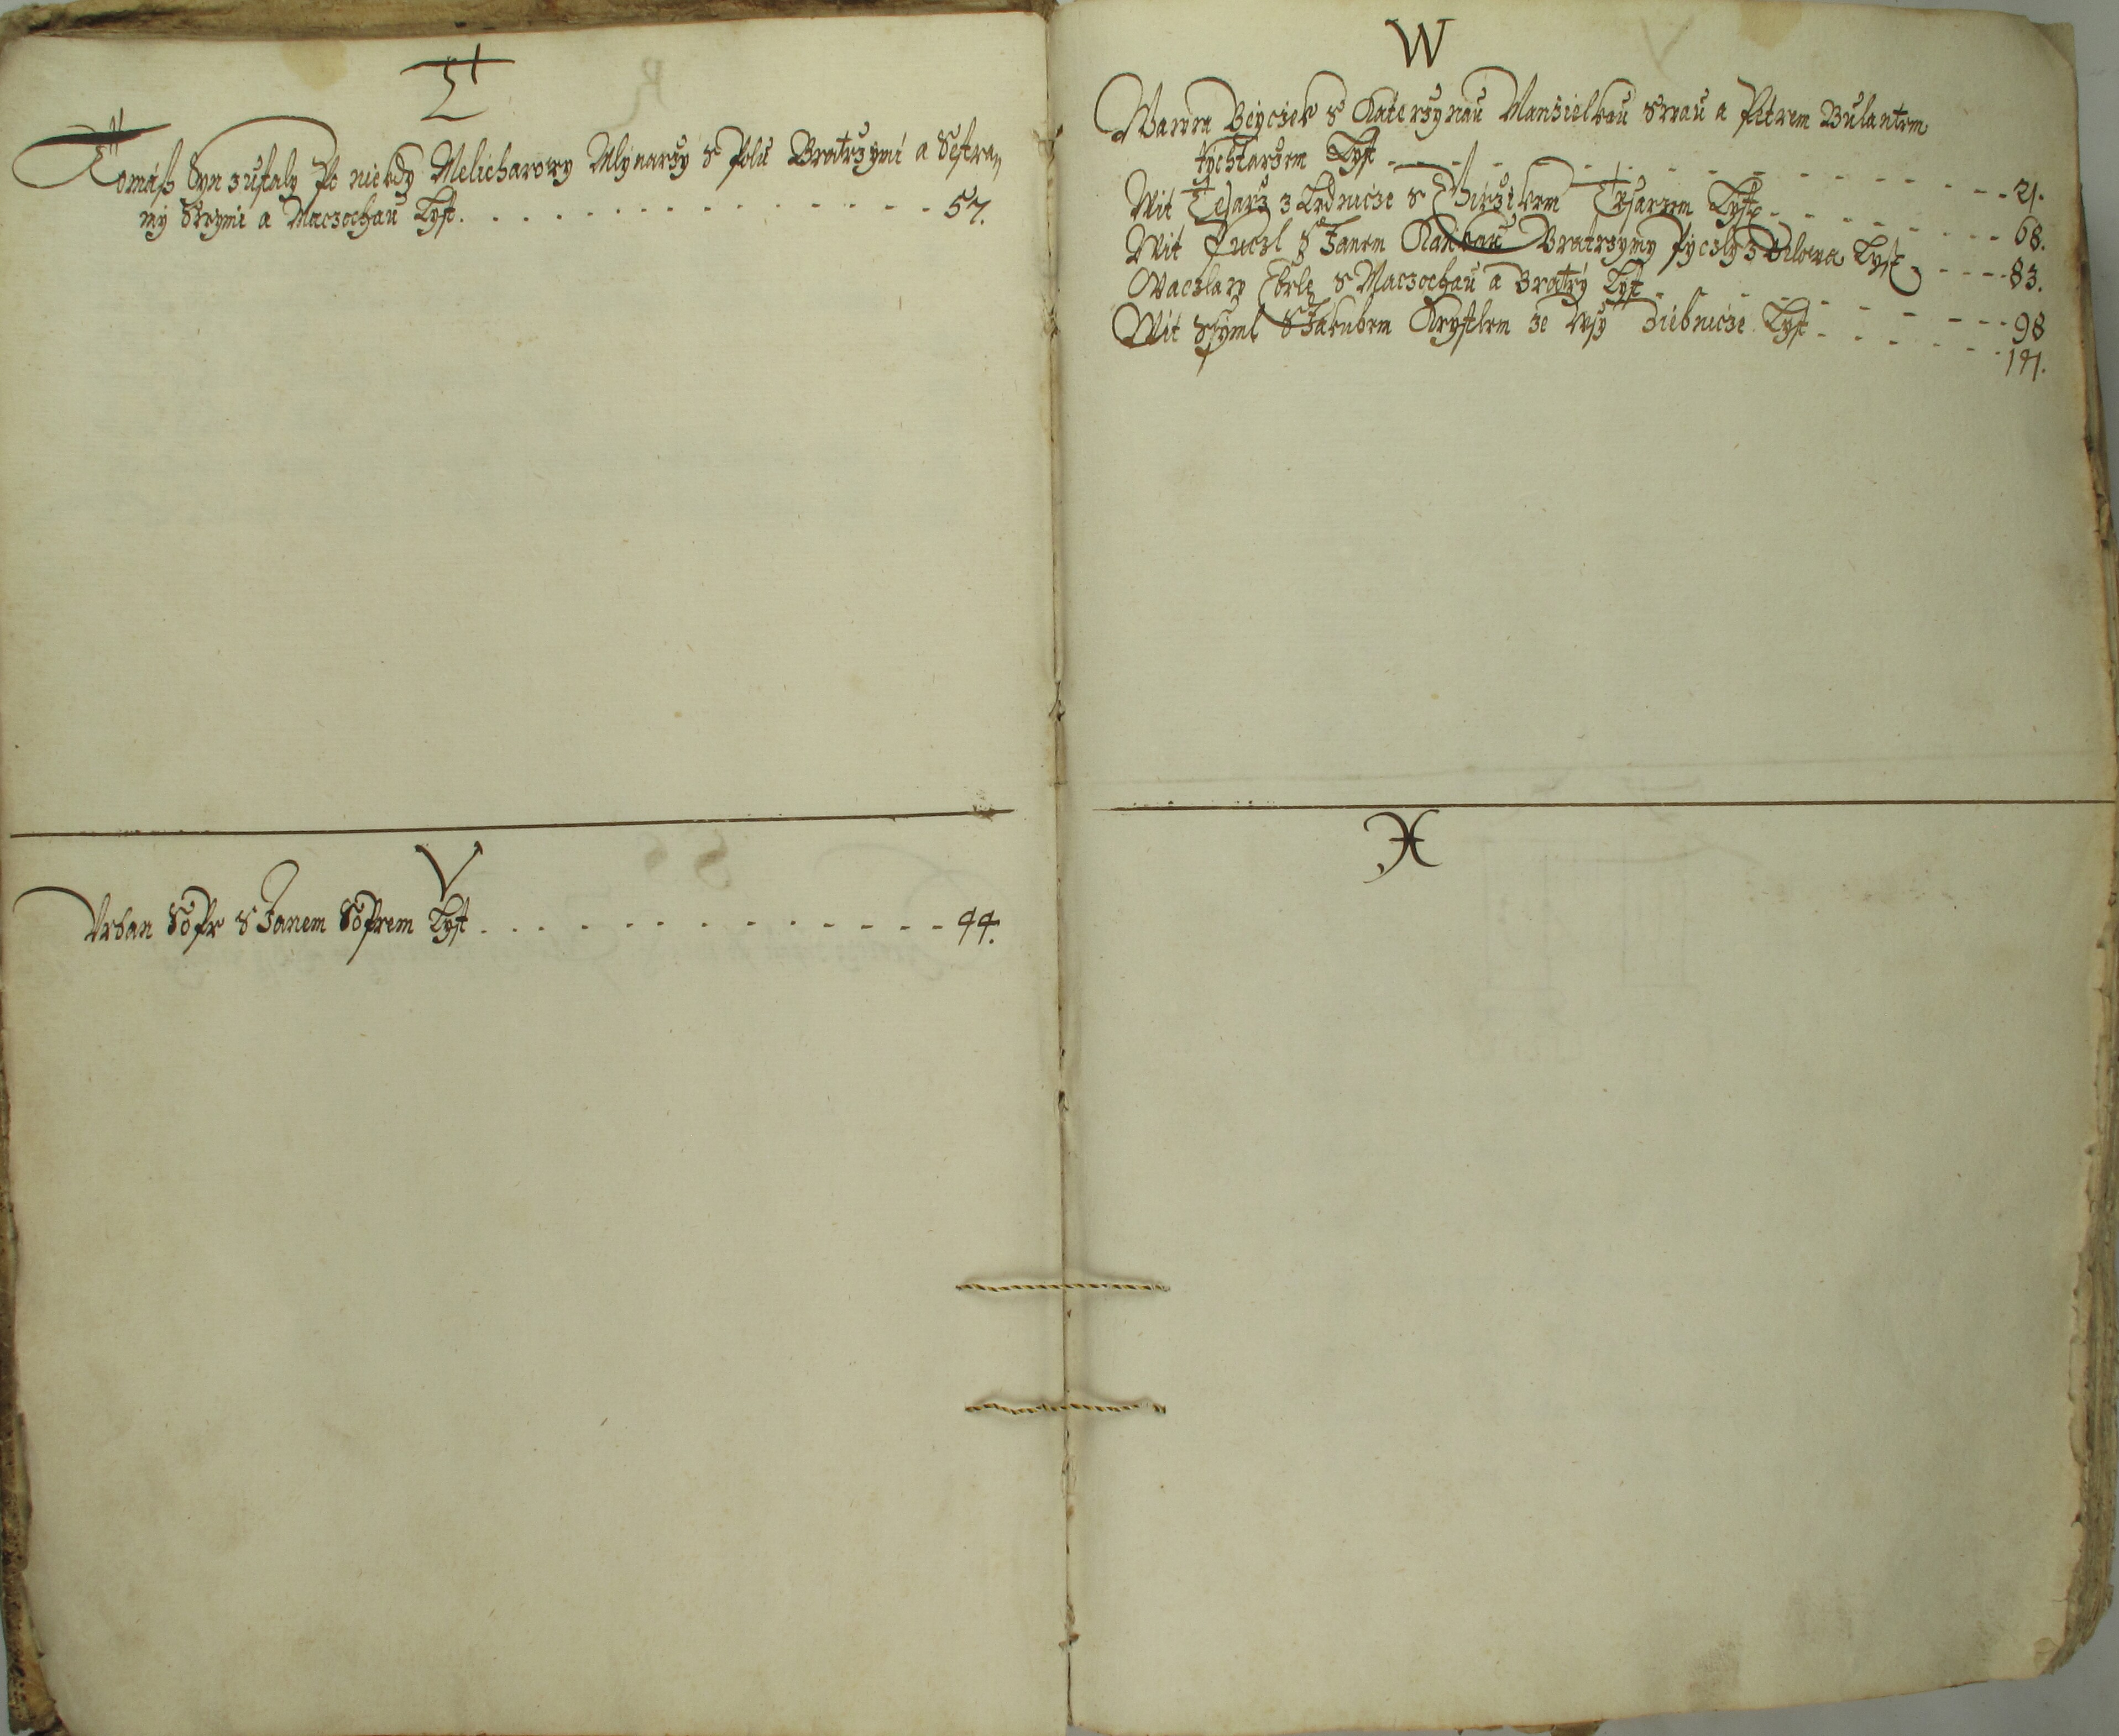 T
Tomáss Syn zustaly Po niekdy Melicharowy Mlynarzy s Polu Bratrzymi a Sestra„
my Swymi a Maczochau Lyst. 57.
V
Urban Sofr s Janem Sofrem Lyst 44.
W
Wawra Beyczek s Katerzynau Manzielkau Swau a Petrem Bulantem
Rychtarzem Lyst 21.
Wit Tesarz z Lednicze s Tesarzem Lyst 68.
Wit Puczl s Janem Bratrzymy Pyczly z Lyst 83.
Waczlaw Eberle s Maczochau a Bratry Lyst 98
Wit Ssyml s Jakubem Krystlem ze Wsy Ziebnicze Lyst 141.
X